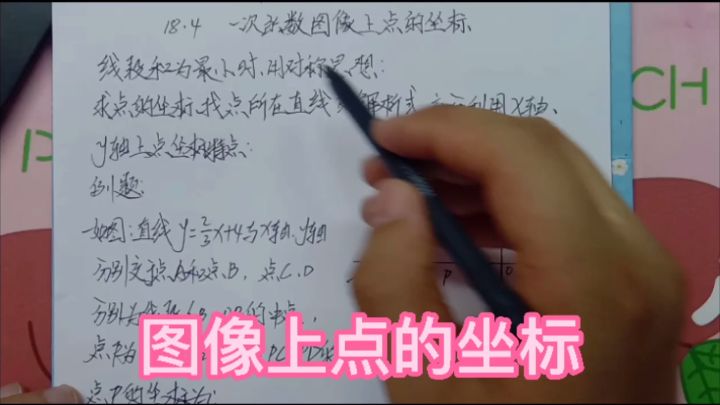 18.4 一次函数图像上点的坐标
线段和为最小时,用对称思想:
求点的坐标,找点所在直线 解析式 利用x轴、
y轴上点坐标特点:
例题:
如图:直线 y=2/3x+4与x轴、y轴
分别交于点A和点B,点C、D
P O
分别为线段 的中点,
点P为 PC
点P的坐标为:
图像上点的坐标
P CH